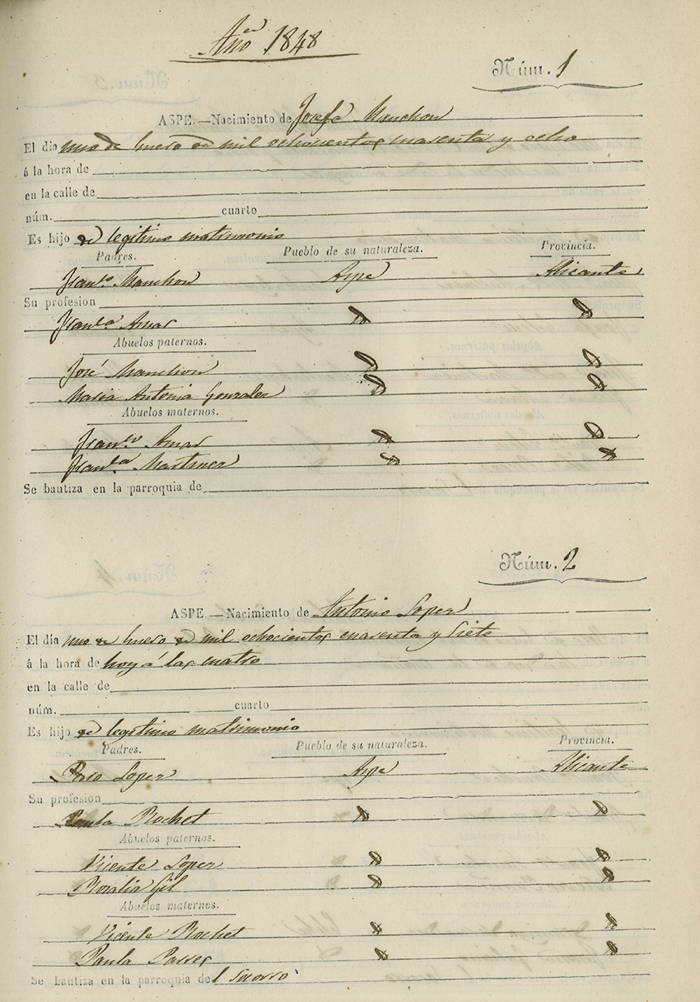 Año de 1848
Núm. 1
ASPE.—Nacimiento de Josefa Manchon
El dia uno de Enero de mil ochocientos cuarenta y ocho
á la hora de
en la calle de
núm. cuarto
Es hijo de legitimo matrimonio
Padres. Pueblo de su naturaleza. Provincia.
Franco. Manchon Aspe Alicante
Su profesion
Franca. Amar
Abuelos paternos.
José Manchon
Maria Antonia Gonzalez
Abuelos maternos.
Franco. Amar
Franca. Martinez
Se bautiza en la parroquia de
Núm. 2
ASPE.—Nacimiento de Antonio Lopez
El dia uno de Enero de mil ochocientos cuarenta y siete
á la hora de hoy á las cuatro
en la calle de
núm. cuarto
Es hijo de legitimo matrimonio
Padres. Pueblo de su naturaleza. Provincia.
Lopez Aspe Alicante
Su profesion
Paula Rochet
Abuelos paternos.
Vicente Lopez
Rosalia Gil
Abuelos maternos.
Vicente Rochet
Paula
Se bautiza en la parroquia del Socorro